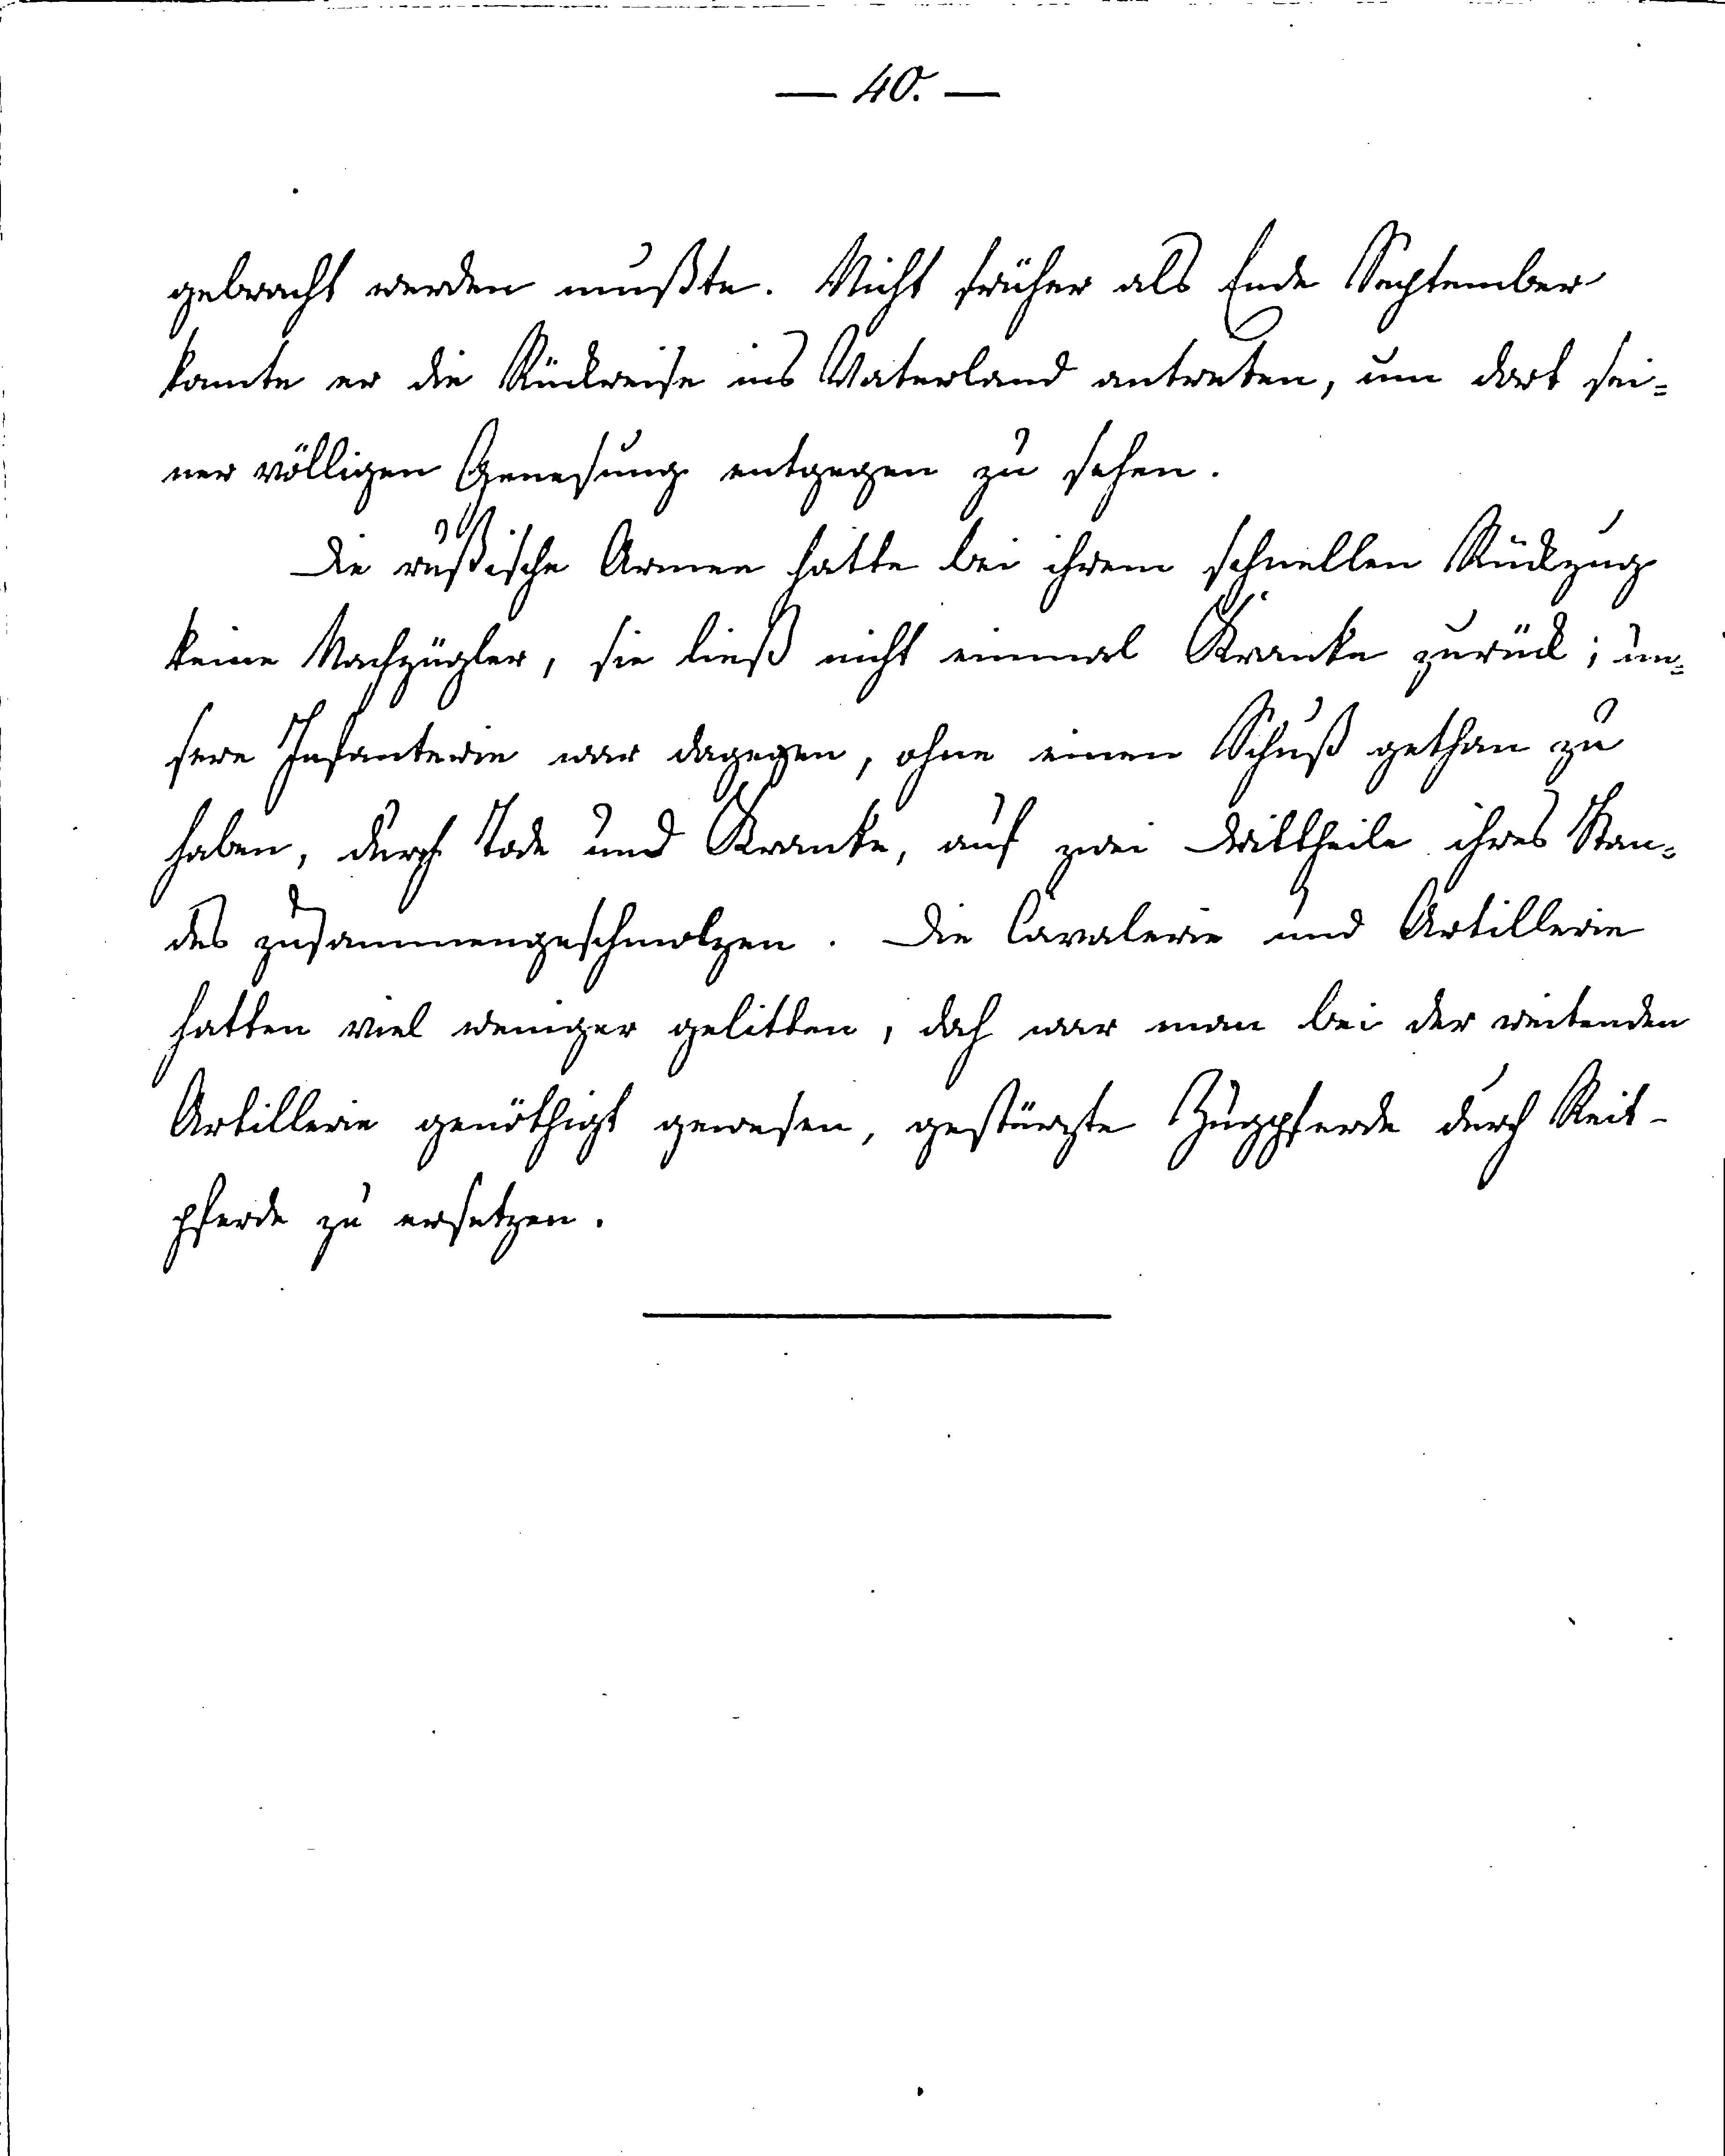 — 40. —
gebracht werden mußte. Nicht früher als Ende September
konnte er die Rückreise ins Vaterland antreten, um dort sei-
ner völligen Genesung entgegen zu sehen.
Die rußische Armee hatte bei ihrem schnellen Rückzug
keine Nachzügler, sie ließ nicht einmal Kranke zurück; un-
sere Infanterie war dagegen, ohne einen Schuß gethan zu
haben, durch Tode und Kranke, auf zwei Drittheile ihres Stan-
des zusammengeschmolzen. Die Cavalerie und Artillerie
hatten viel weniger gelitten, doch war man bei der reitenden
Artillerie genöthigt gewesen, gestürzte Zugpferde durch Reit-
pferde zu ersetzen.